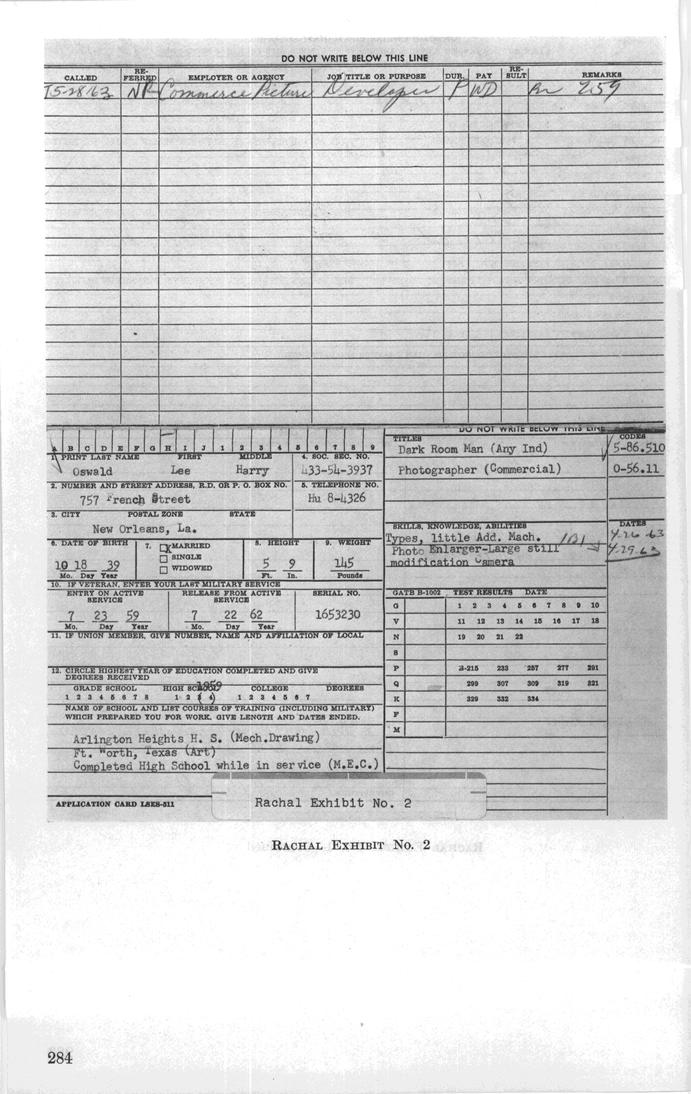 DO NOT WRITE BELOW THIS LINE
CALLED RE-FERRED EMPLOYER OR AGENCY JOB TITLE OR PURPOSE DUR. PAY RE-SULT REMARKS
5-28-63 NR Commerce Picture Developer P WD 259
A B C D E F G H I J 1 2 3 4 5 6 7 8 9
1. PRINT LAST NAME FIRST MIDDLE 4. SOC. SEC. NO.
Oswald Lee Harry 433-54-3937
2. NUMBER AND STREET ADDRESS, R.D. OR P. O. BOX NO. 5. TELEPHONE NO.
757 French Street Hu 8-4326
3. CITY POSTAL ZONE STATE
New Orleans, La.
6. DATE OF BIRTH 7. MARRIED 8. HEIGHT 9. WEIGHT
SINGLE
10 18 39 WIDOWED 5 9 145
Mo. Day Year Ft. In. Pounds
10. IF VETERAN, ENTER YOUR LAST MILITARY SERVICE
ENTRY ON ACTIVE SERVICE RELEASE FROM ACTIVE SERVICE SERIAL NO.
7 23 59 7 22 62 1653230
Mo. Day Year Mo. Day Year
11. IF UNION MEMBER, GIVE NUMBER, NAME AND AFFILIATION OF LOCAL
12. CIRCLE HIGHEST YEAR OF EDUCATION COMPLETED AND GIVE
DEGREES RECEIVED
GRADE SCHOOL HIGH SCHOOL 1959 COLLEGE DEGREES
1 2 3 4 5 6 7 8 1 2 (3 4) 1 2 3 4 5 6 7
NAME OF SCHOOL AND LIST COURSES OF TRAINING (INCLUDING MILITARY)
WHICH PREPARED YOU FOR WORK. GIVE LENGTH AND DATES ENDED.
Arlington Heights H. S. (Mech.Drawing)
Ft. Worth, Texas (Art)
Completed High School while in service (M.E.C.)
APPLICATION CARD LSES-511
DO NOT WRITE BELOW THIS LINE
TITLES CODES
Dark Room Man (Any Ind) 5-86.510
Photographer (Commercial) 0-56.11
SKILLS, KNOWLEDGE, ABILITIES DATES
Types, little Add. Mach. 4-26-63
Photo Enlarger-Large still 4-29-63
modification Camera
GATB B-1002 TEST RESULTS DATE
G 1 2 3 4 5 6 7 8 9 10
V 11 12 13 14 15 16 17 18
N 19 20 21 22
S
P B-215 233 257 277 291
Q 299 307 309 319 321
K 329 332 334
F
M
Rachal Exhibit No. 2
RACHAL EXHIBIT NO. 2
284